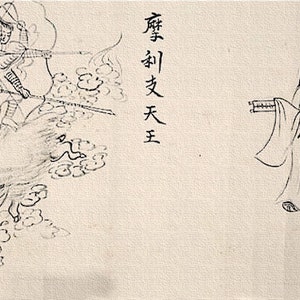 摩利支天王